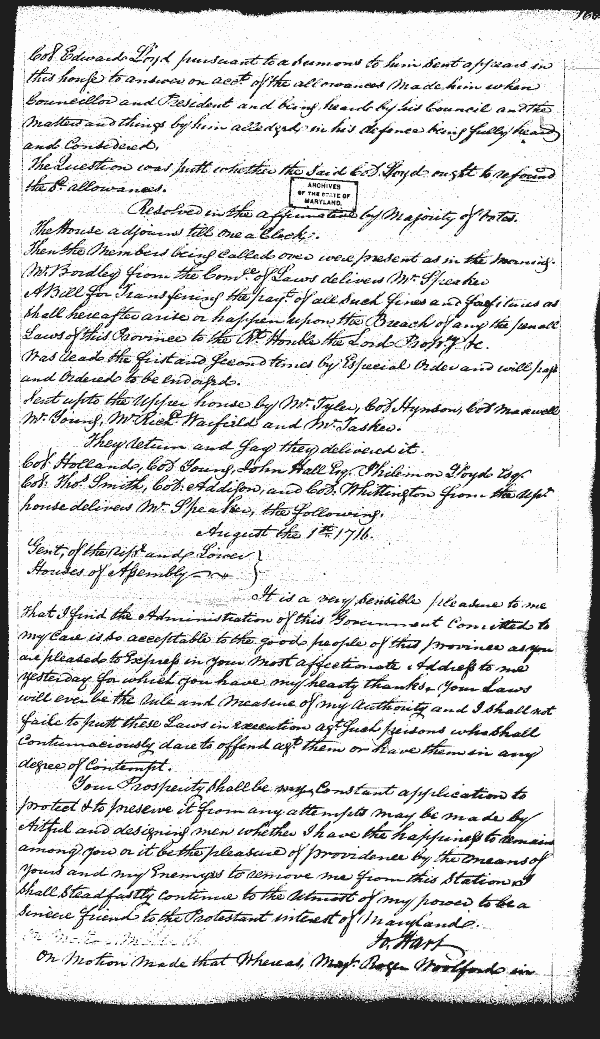 Col. Edward Lloyd pursuant to a Sumons to him Sent appears in
this house to answer on acct. of the allowances made him when
Councillor and President and being heard by his Council and the
matters and things by him alledged in his defence being fully heard
and Considered.
The Question was putt whether the said Col. Lloyd ought to refound
the sd. allowances.
ARCHIVES
OF THE STATE OF
MARYLAND.
Resolved in the affirmative by Majority of Votes.
The House adjourns till one a Clock.
Then the Members being called over were present as in the morning.
Mr. Bordley from the Comee. of Laws delivers Mr. Speaker
A Bill for Transferring the payt. of all Such fines and forfeitures as
shall hereafter arise or happen upon the Breach of any the penall
Laws of this Province to the Rt. Honble the Lord Propry. &c.
Was read the first and Second times by Especial Order and will pass
and Ordered to be endorsed.
Sent up to the Upper house by Mr. Tyler, Col. Hynson, Col. Maxwell
Mr. Young, Mr. Richd. Warfield and Mr. Tasker.
They return and Say they delivered it.
Col. Holland, Col. Young, John Hall Esq. Philemon Lloyd Esq.
Col. Tho. Smith, Col. Addison, and Col. Whittington from the Uppr.
house delivers Mr. Speaker, the following.
August the 1st. 1716.
Gent, of the Uppr. and Lower
Houses of Assembly
It is a very Sensible pleasure to me
that I find the Administration of this Government Comitted to
my Care is so acceptable to the good people of this province as you
are pleased to Express in your most affectionate Address to me
yesterday for which you have my hearty thanks. Your Laws
will ever be the rule and Measure of my Authority and I shall not
faile to putt these Laws in execution agt. Such persons who Shall
Contumaciously dare to offend agt. them or have them in any
degree of Contempt.
Your Prosperity shall be my Constant application to
protect & to preserve it from any attempts may be made by
Artful and designing men whether I have the happiness to remain
among you or it be the pleasure of providence by the means of
yours and my Enemyes to remove me from this Station I
Shall Steadfastly continue to the Utmost of my power to be a
Sincere friend to the Protestant interest of Maryland.
Jo. Hart
On Motion made that Whereas, Majr. Roger Woolford in